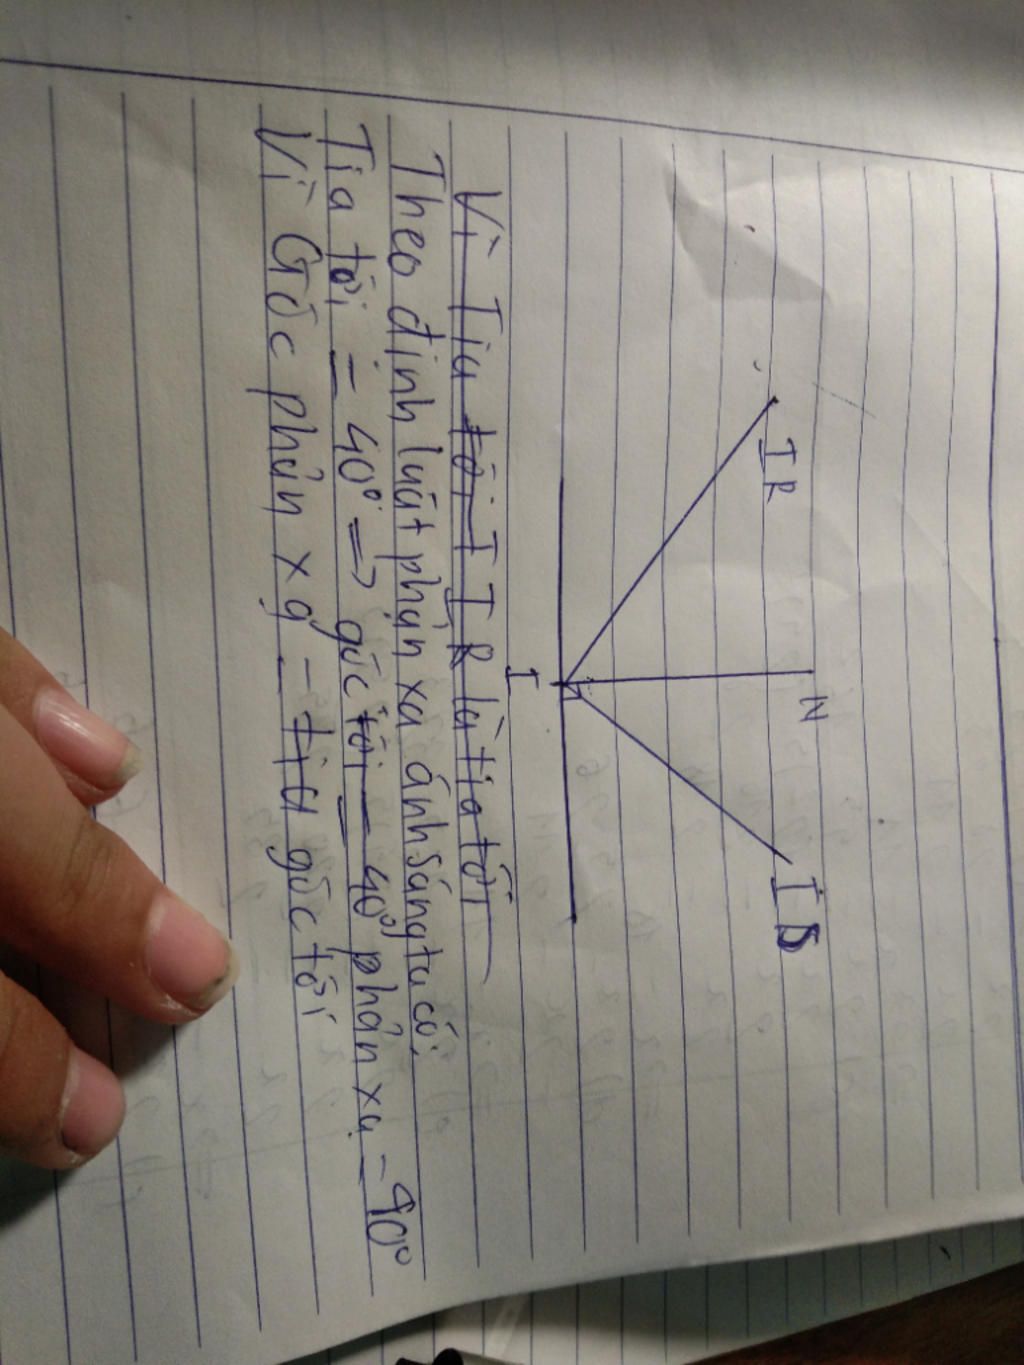 IR
N
IS
I
Vì Tia tới I IR là tia tới
Theo định luật phản xạ ánh sáng ta có:
Tia tới = 40° => góc tới = 40° phản xạ = 40°
Vì Góc phản xạ = tia góc tới